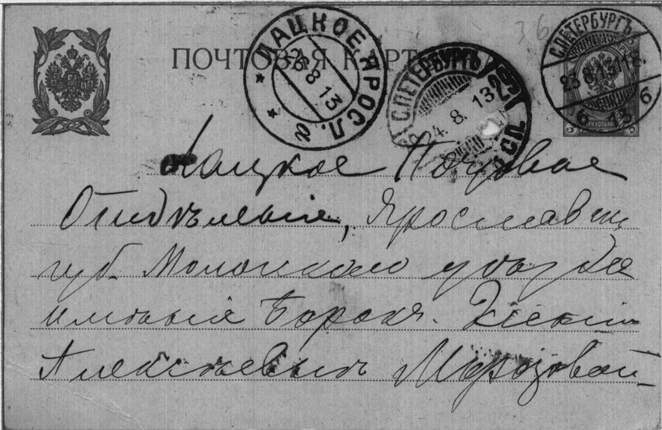 ПОЧТОВАЯ КАРТ
ЛАЦКОЕ. ЯРОСЛ.
26 8 13
С.ПЕТЕРБУРГЪ
24. 8. 13
С.ПЕТЕРБУРГЪ
23 8 13
Лацкое Почтовое
Отделение, Ярославск
губ. Мологскаго уезда
имение Борокъ.
Алексеевнъ Морозовой